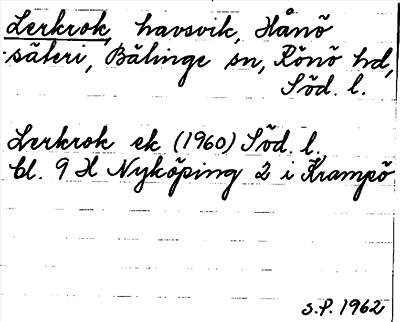 Lerkrok, havsvik, Hånö
säteri, Bälinge sn, Rönö hd,
Söd. l.
Lerkrok ek (1960) Söd. l.
bl. 9 H Nyköping 2 i Krampö
S.P. 1962